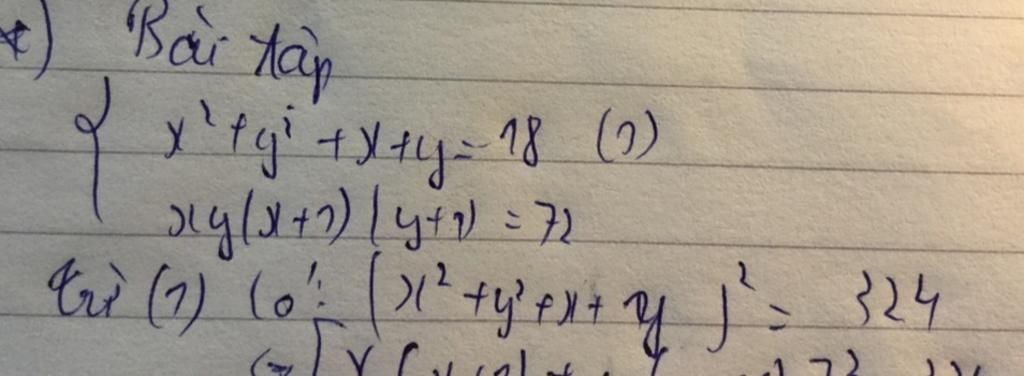 *) Bài tập
x² + y² + x + y = 18 (1)
xy(x+1)(y+1) = 72
từ (1) có: (x² + y² + x + y)² = 324